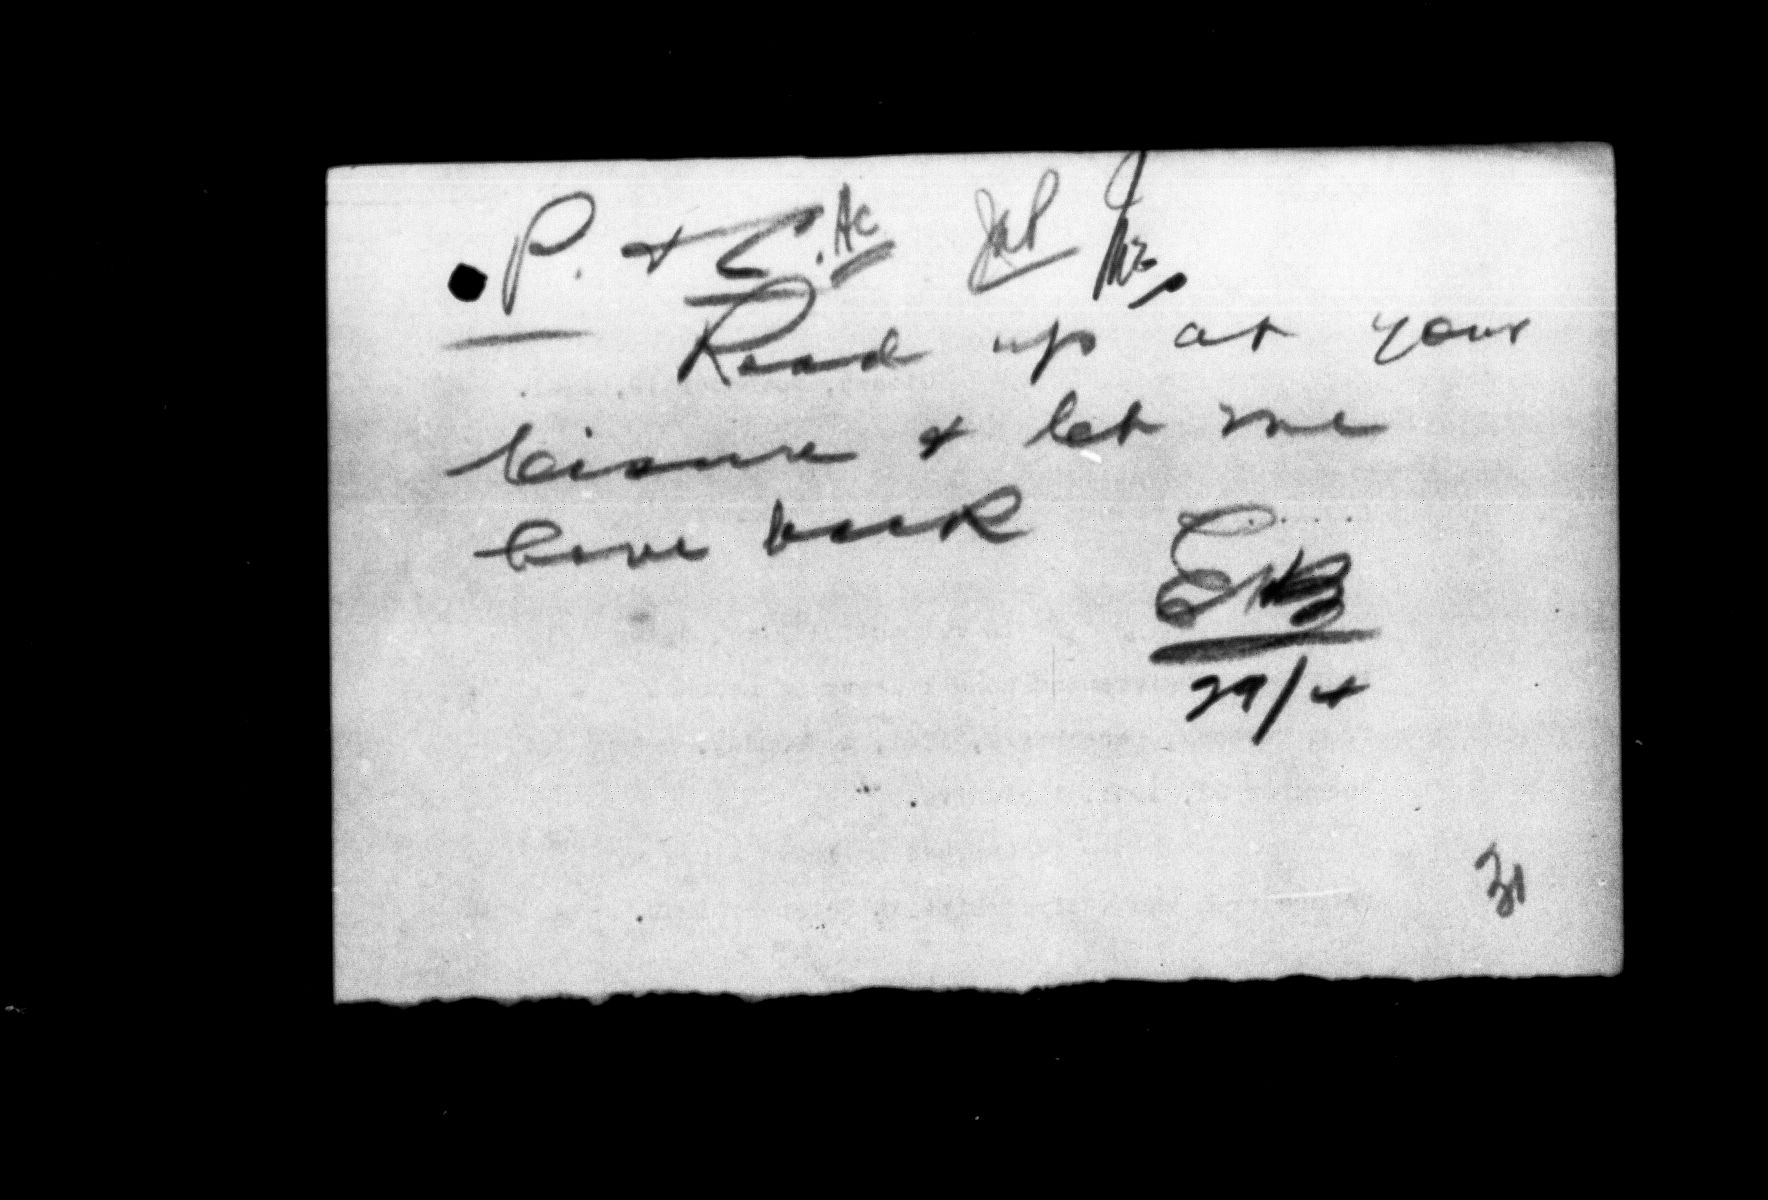 P. & C. AC
Read up at your
leisure & let me
have back
29/4
31